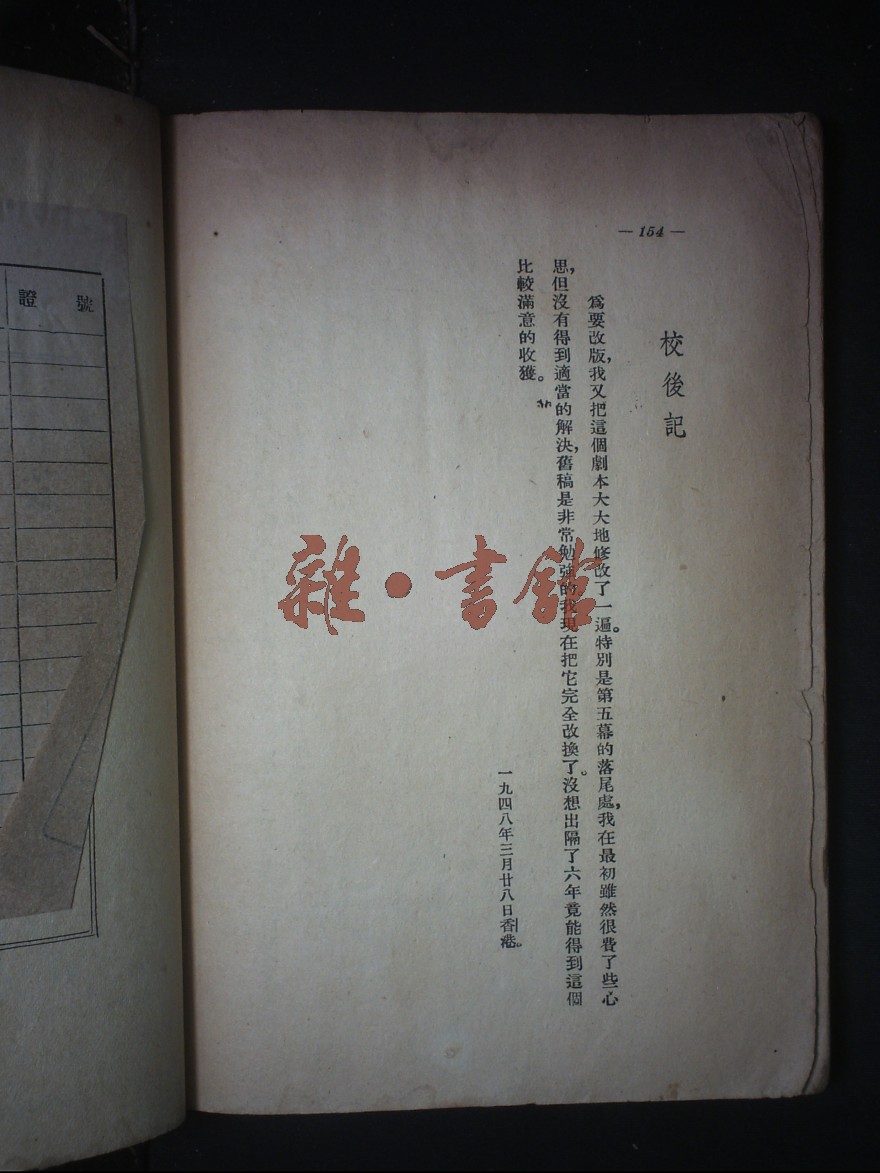 — 154 —
校後記
爲要改版，我又把這個劇本大大地修改了一遍。特別是第五幕的落尾處，我在最初雖然很費了些心
思，但沒有得到適當的解決，舊稿是非常勉強的我現在把它完全改換了。沒想出隔了六年竟能得到這個
比較滿意的收獲。
一九四八年三月廿八日香港。
雜·書館
證號